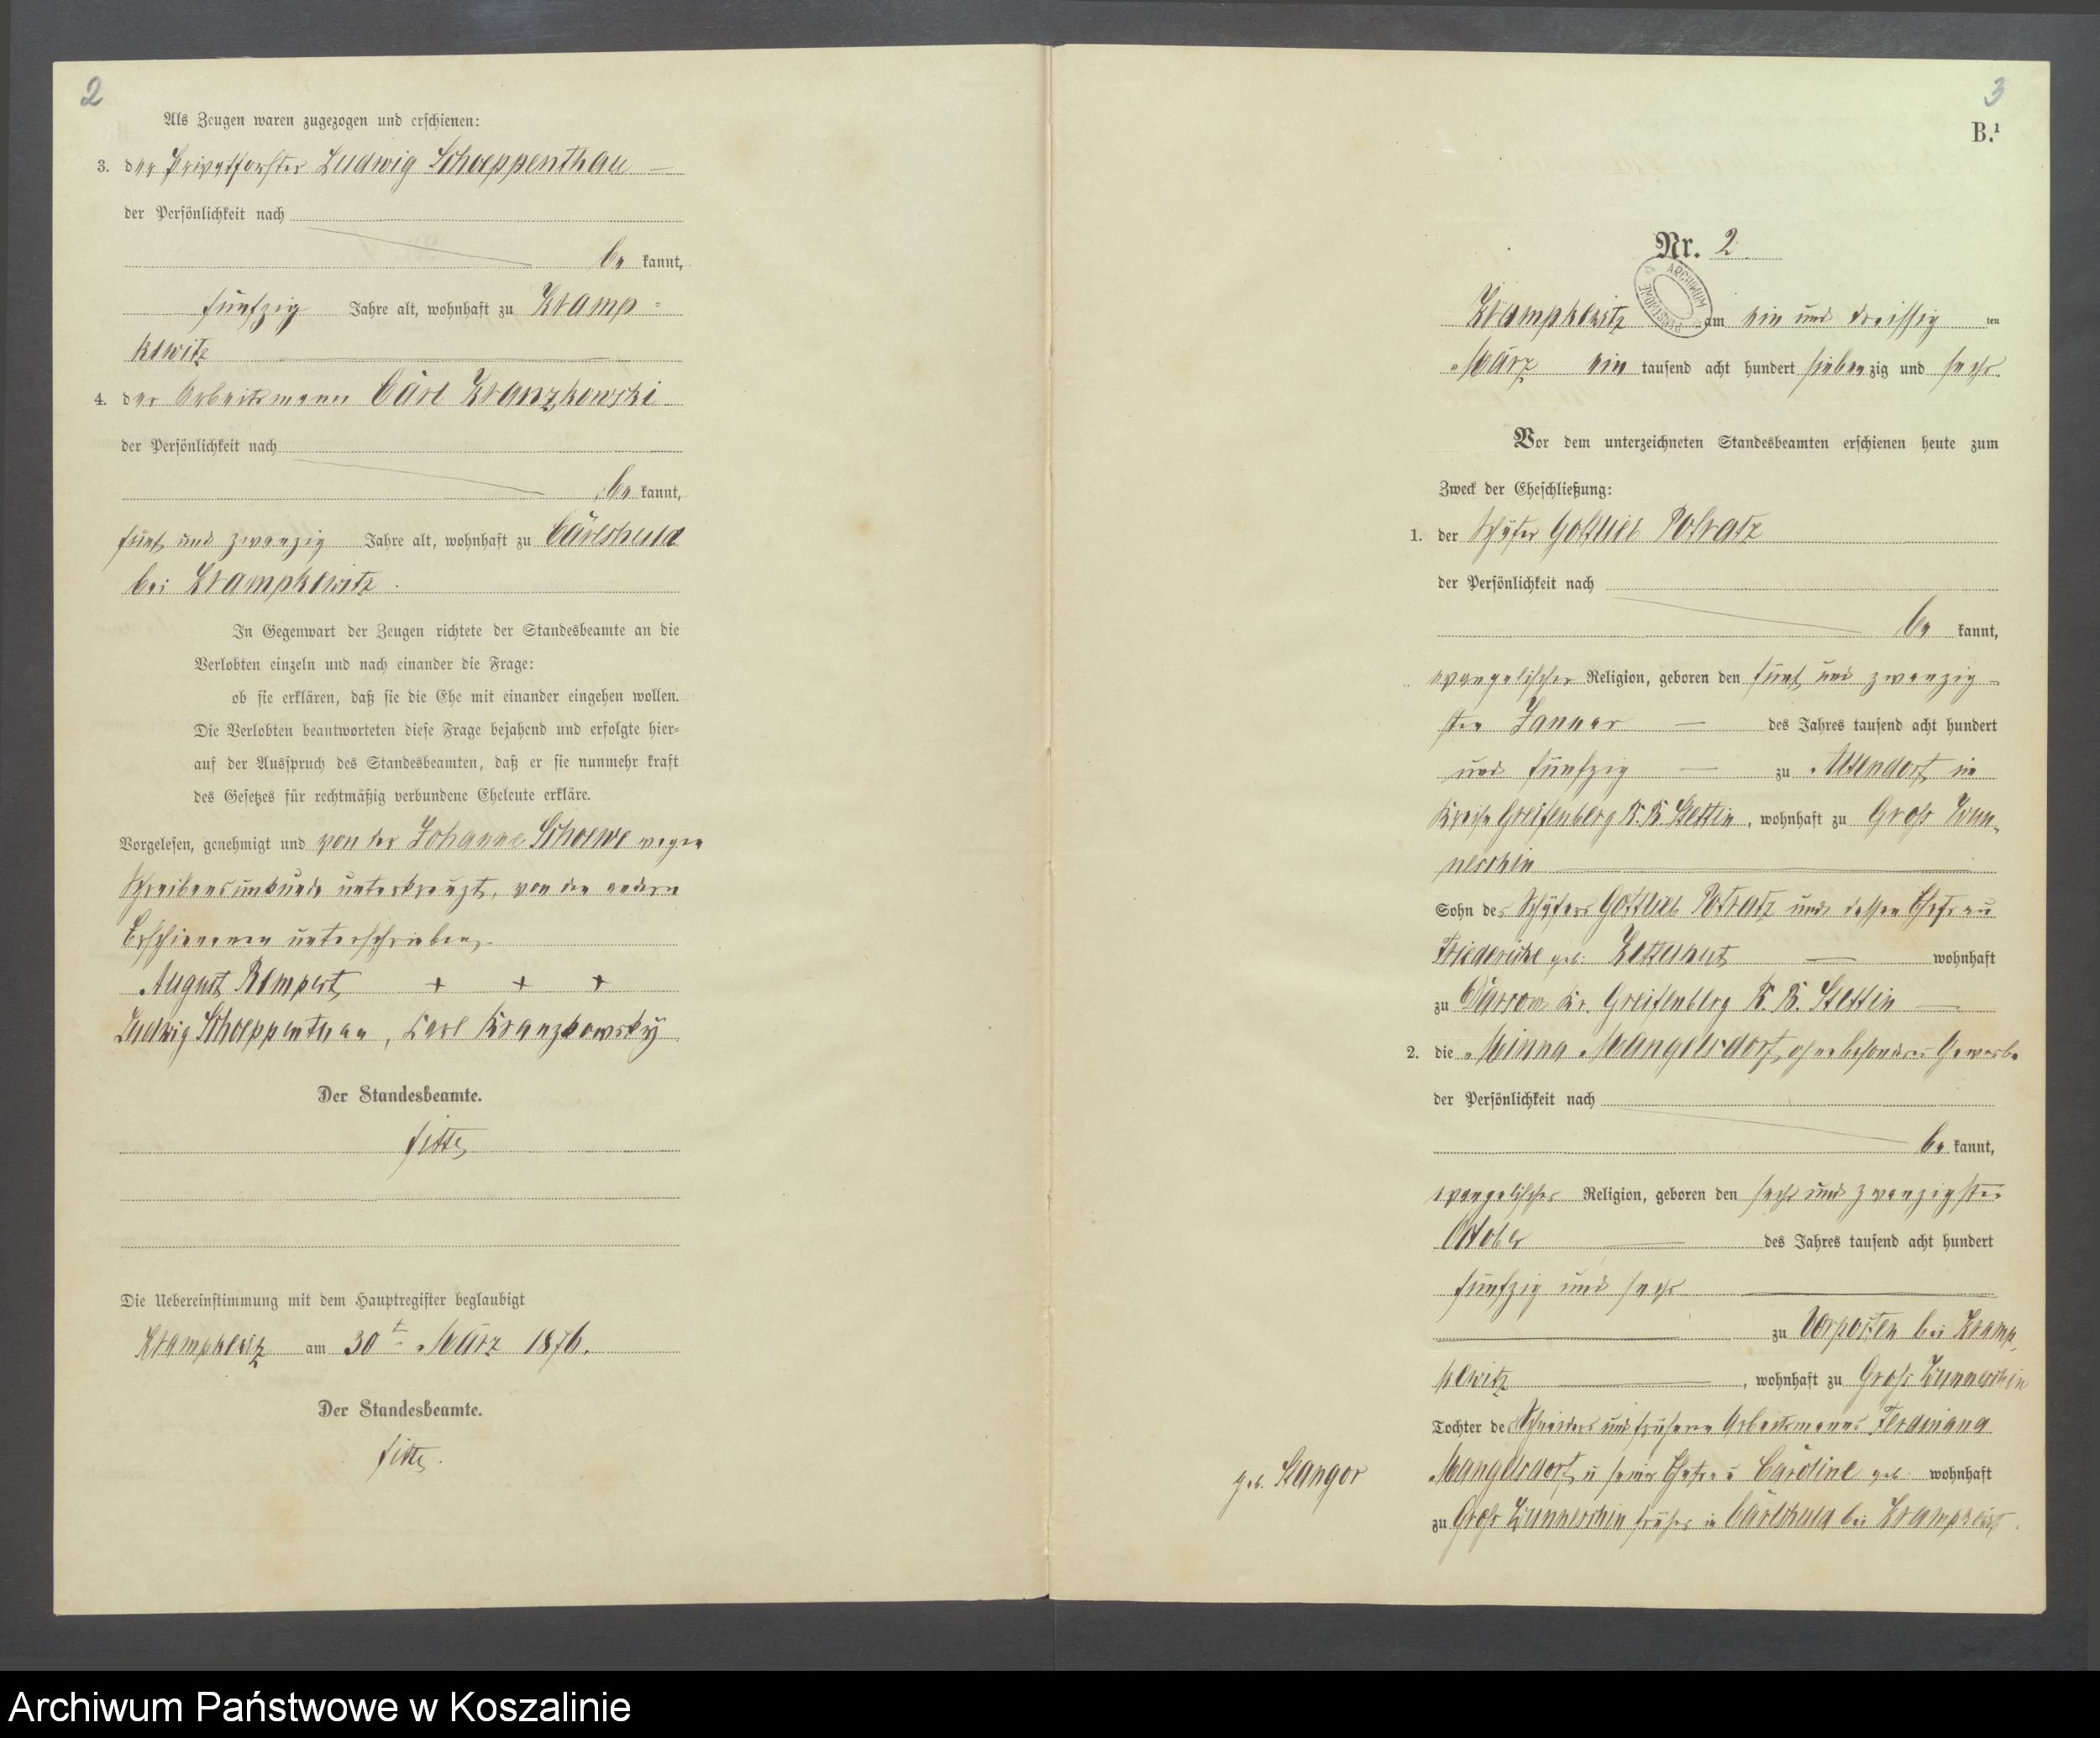 2
Als Zeugen waren zugezogen und erschienen:
3. der Privatförster Ludwig Schoeppenthau
der Persönlichkeit nach
be kannt,
fünfzig Jahre alt, wohnhaft zu Kramp=
kewitz
4. der Arbeitsmann Carl Kranzkowski
der Persönlichkeit nach
be kannt,
fünf und zwanzig Jahre alt, wohnhaft zu Carlshuld
bei Krampkewitz.
In Gegenwart der Zeugen richtete der Standesbeamte an die
Verlobten einzeln und nach einander die Frage:
ob sie erklären, daß sie die Ehe mit einander eingehen wollen.
Die Verlobten beantworteten diese Frage bejahend und erfolgte hier=
auf der Ausspruch des Standesbeamten, daß er sie nunmehr kraft
des Gesetzes für rechtmäßig verbundene Eheleute erkläre.
Vorgelesen, genehmigt und von der Johanne Schoewe wegen
Schreibensunkunde unterkreuzt, von den andern
Erschienenen unterschrieben.
August Rempert + + +
Ludwig Schoeppenthau, Carl Kranzkowsky
Der Standesbeamte.
Die Uebereinstimmung mit dem Hauptregister beglaubigt
Krampkewitz am 30t März 1876.
Der Standesbeamte.
3
B.1
Nr. 2.
Krampkewitz am ein und dreissig ten
März ein tausend acht hundert siebenzig und sechs.
Vor dem unterzeichneten Standesbeamten erschienen heute zum
Zweck der Eheschließung:
1. der Schäfer Gottlieb Potratz
der Persönlichkeit nach
be kannt,
evangelischer Religion, geboren den fünf und zwanzig=
sten Januar des Jahres tausend acht hundert
und fünfzig zu Attendorf im
Kreise Greifenberg R. B. Stettin, wohnhaft zu Groß Wun-
neschin
Sohn des Schäfers Gottlieb Potratz und dessen Ehefrau
Friederike geb. Ketelhut wohnhaft
zu Darsow Kr. Greifenberg R. B. Stettin
2. die Minna Mangelsdorf, ohne besonderes Gewerbe
der Persönlichkeit nach
be kannt,
evangelischer Religion, geboren den sechs und zwanzigsten
October des Jahres tausend acht hundert
fünfzig und sechs
zu Vorposten bei Kramp-
kewitz, wohnhaft zu Groß Wunneschin
Tochter des Schneiders und früheren Arbeitsmanns Ferdinand
Mangelsdorf u seiner Ehefrau Caroline geb. wohnhaft
geb. Stangor
zu Groß Wunneschin früher in Carlshuld bei Krampkewitz.
Archiwum Państwowe w Koszalinie